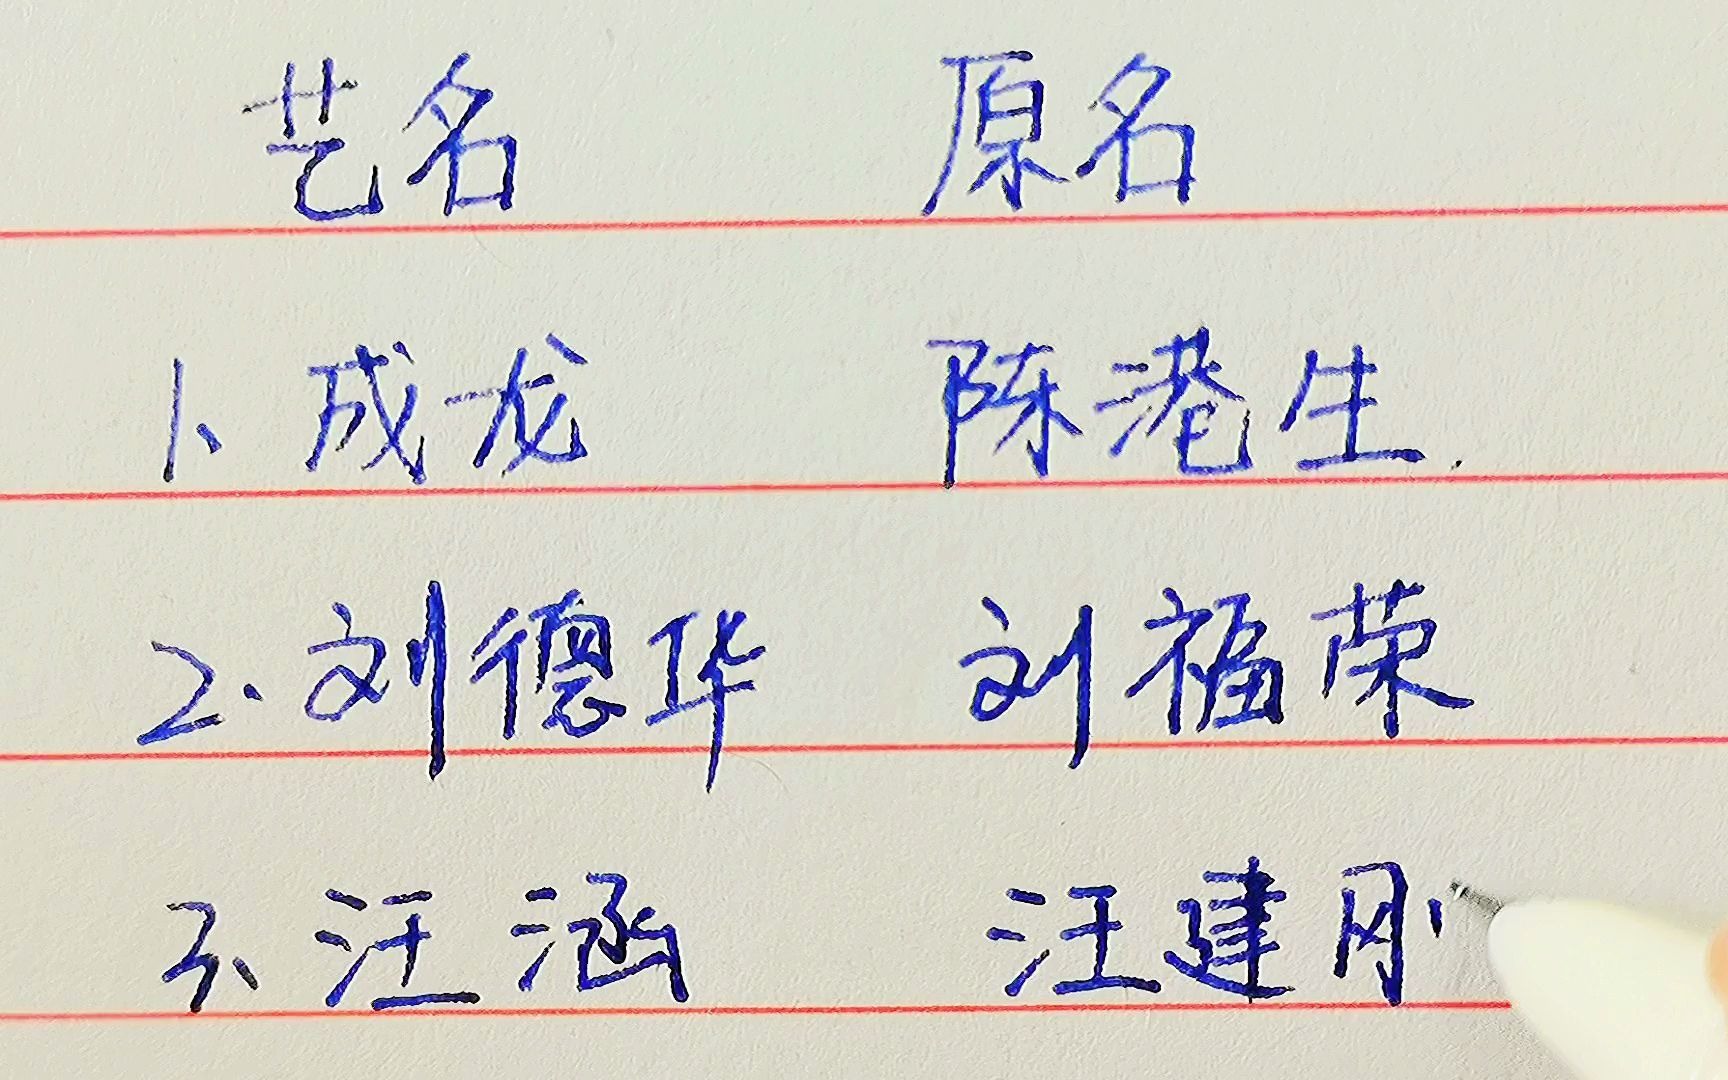 艺名 原名
1、成龙 陈港生.
2.刘德华 刘福荣
3、汪涵 汪建刚